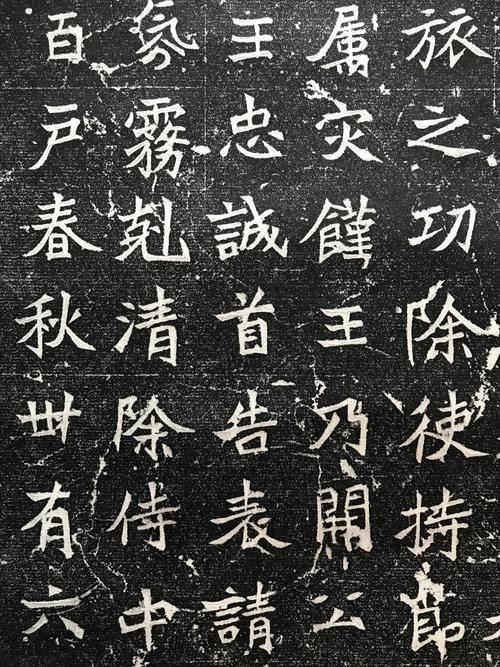 旅之功除使持節
属灾饉王乃開公
王忠誠首告表請
氛霧剋清除侍中
百戶春秋卌有六